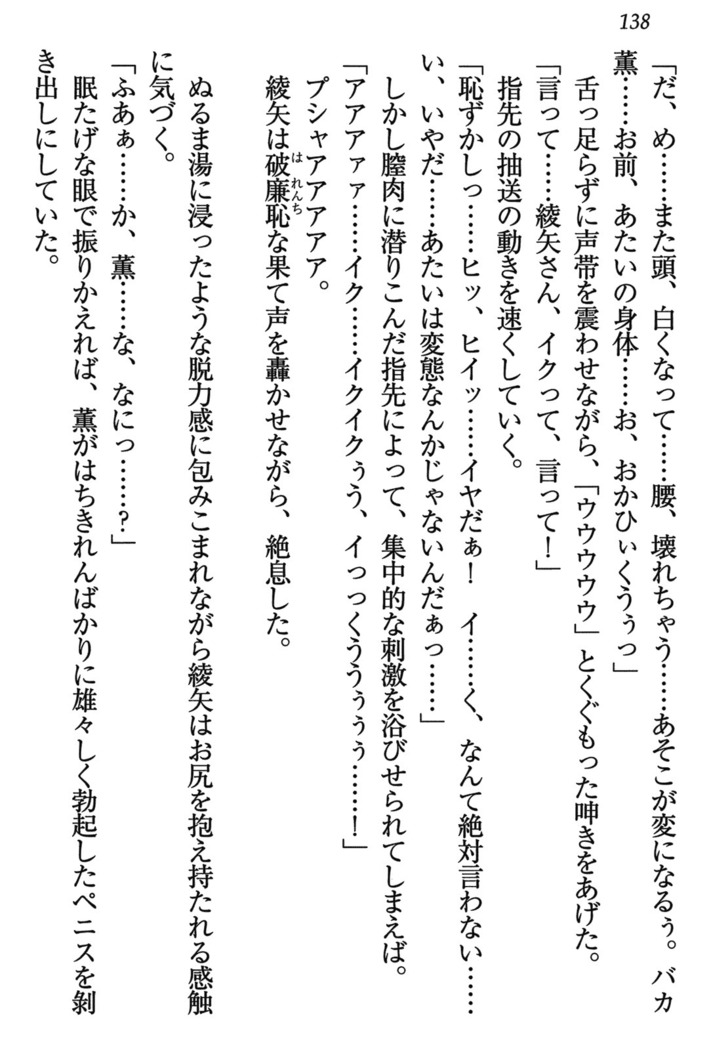 138
「だ、め……また頭、白くなって……腰、壊れちゃう……あそこが変になるぅ。バカ
薫……お前、あたいの身体……お、おかひぃくうぅっ」
舌っ足らずに声帯を震わせながら、「ウウウウウ」とくぐもった呻きをあげた。
「言って……綾矢さん、イクって、言って！」
指先の抽送の動きを速くしていく。
「恥ずかしっ……ヒッ、ヒイッ……イヤだぁ！　イ……く、なんて絶対言わない……
い、いやだ……あたいは変態なんかじゃないんだぁっ……」
しかし膣肉に潜りこんだ指先によって、集中的な刺激を浴びせられてしまえば。
「アアアァァ……イク……イクイクぅう、イっっくううぅぅぅ……！」
プシャアアアアア。
綾矢は破廉恥な果て声を轟かせながら、絶息した。
ぬるま湯に浸ったような脱力感に包みこまれながら綾矢はお尻を抱え持たれる感触
に気づく。
「ふあぁ……か、薫……な、なにっ……？」
眠たげな眼で振りかえれば、薫がはちきれんばかりに雄々しく勃起したペニスを剝
き出しにしていた。